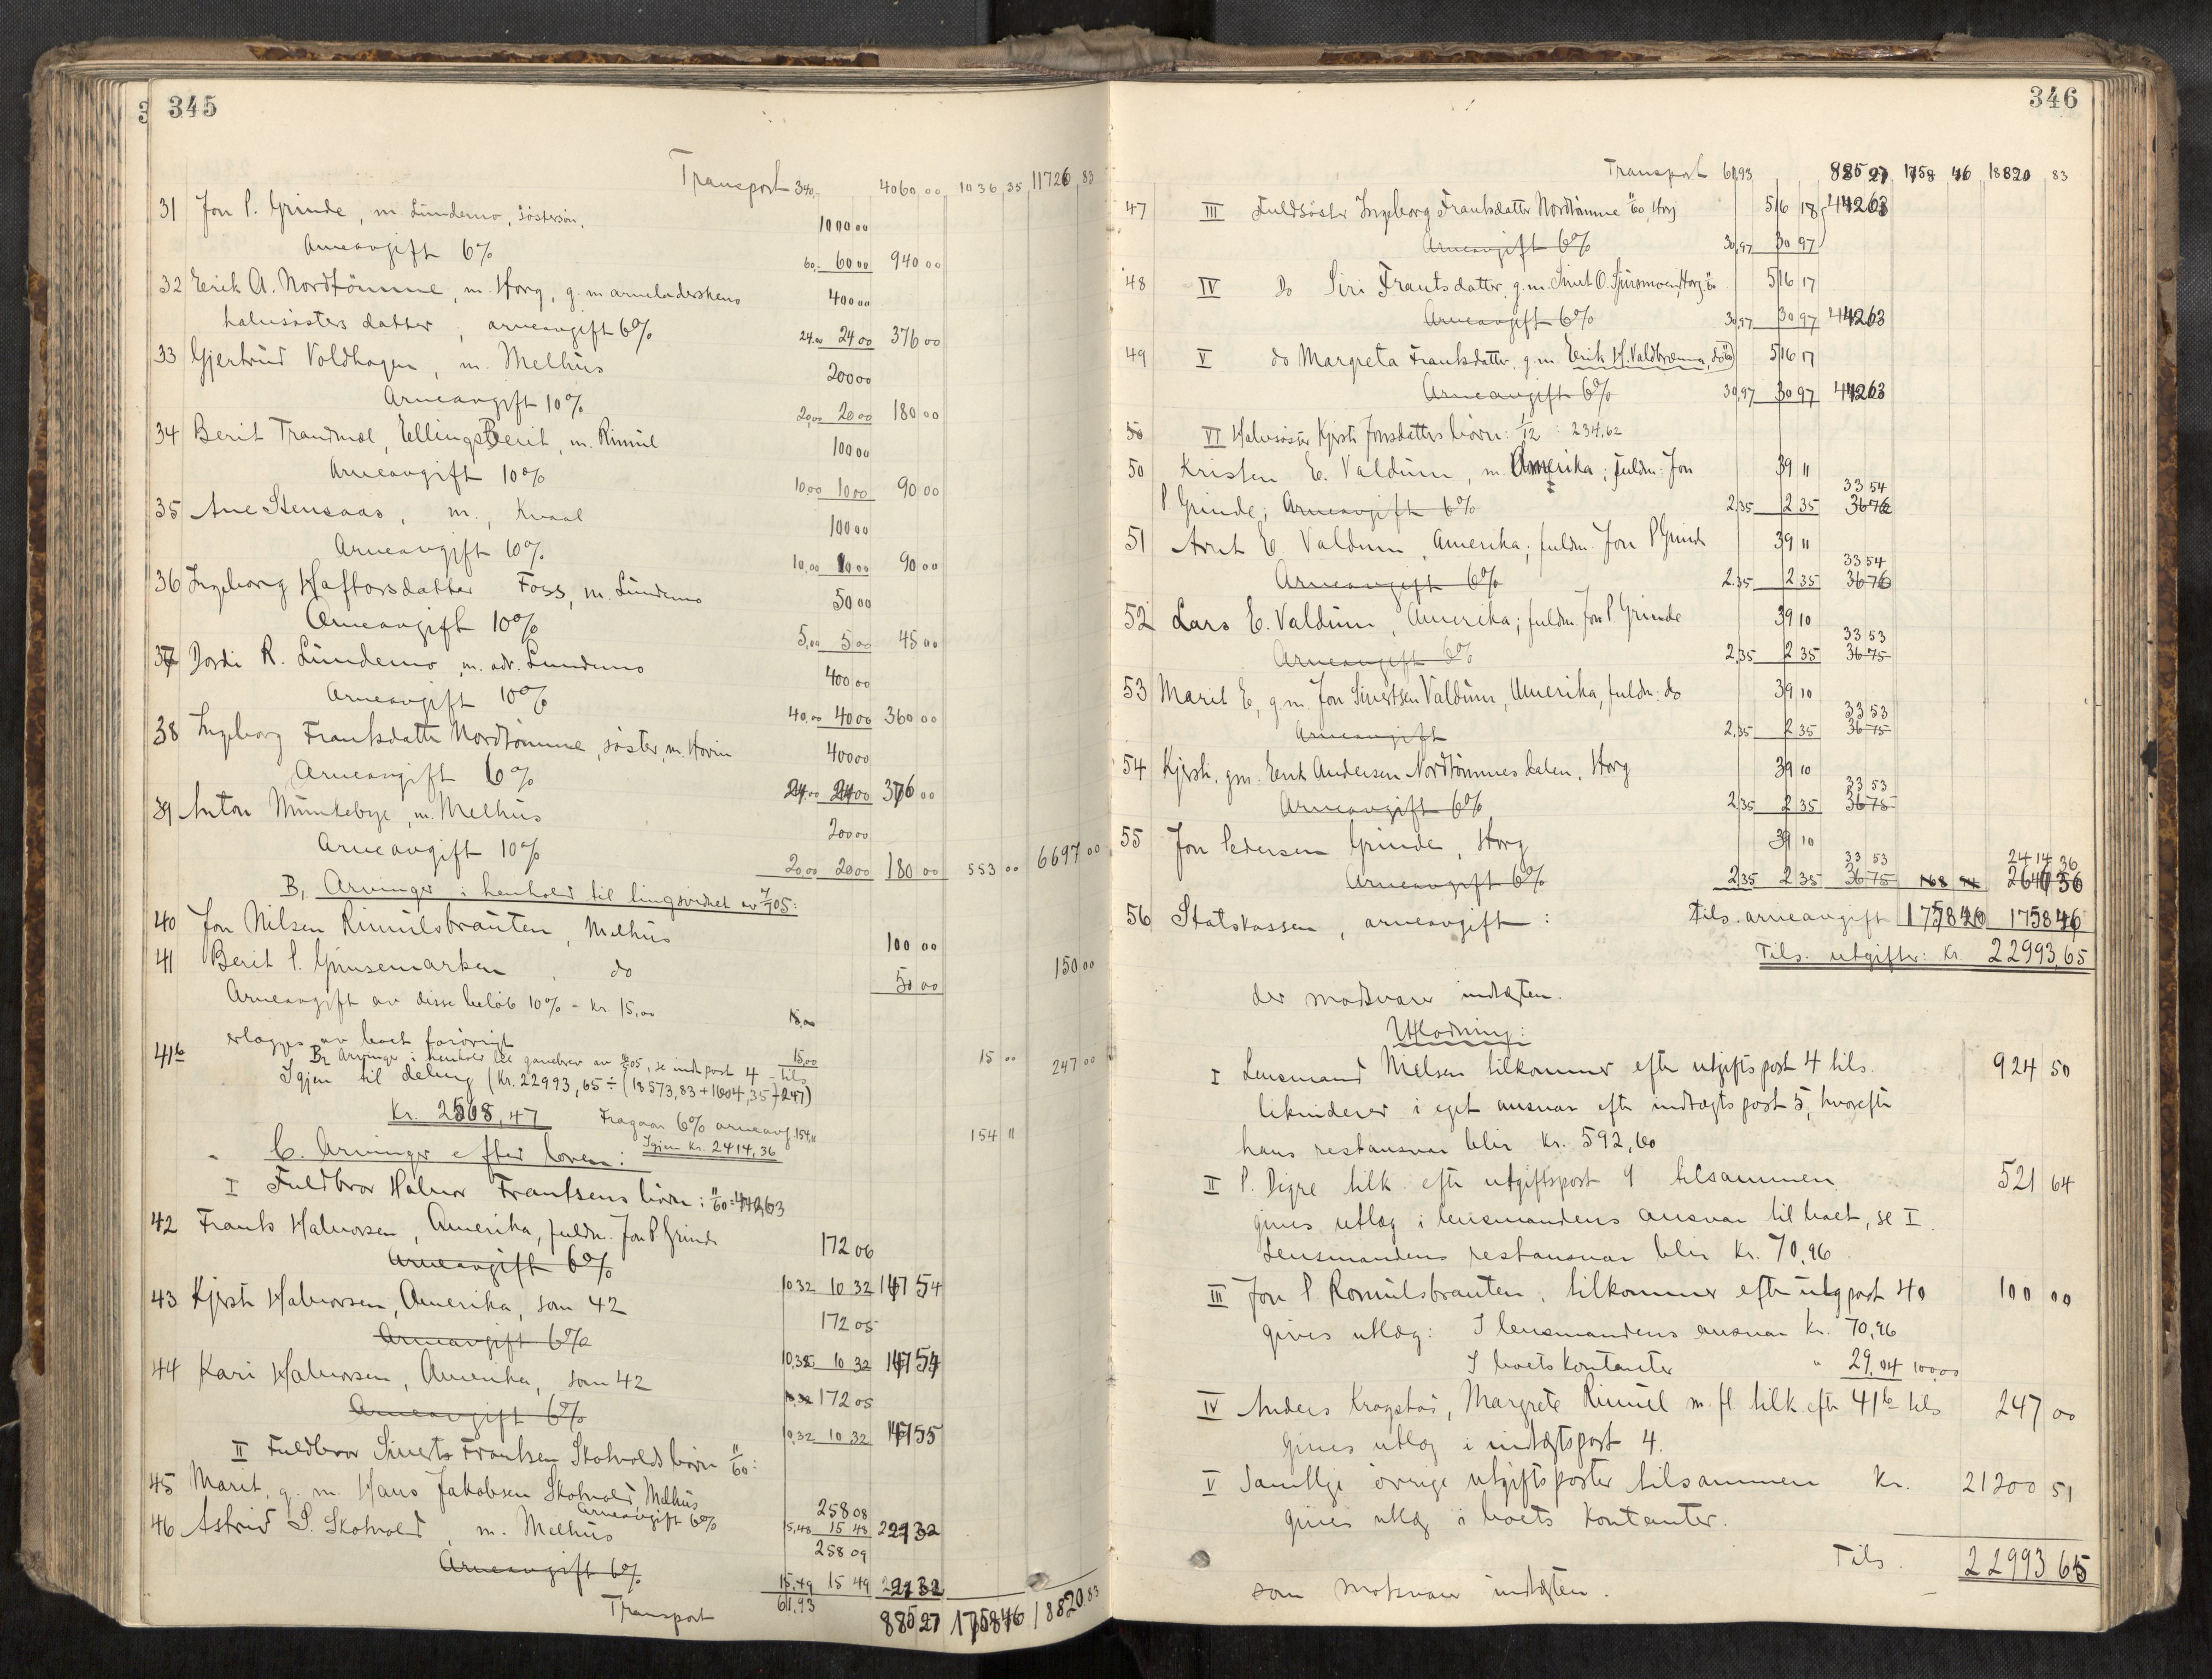 345
Transport 340,- 4060 00 1036 35 11726 83
31 Jon P. Grinde, m. Lundemo, søstersøn, 1000 00
Arveavgift 6% 60,- 60 00 940 00
32 Erik A. Nordtømme, m. Horg, g. m. arveladerskens 400 00
halvsøsters datter, arveavgift 6% 24.00 24 00 376 00
33 Gjertrud Voldhagen, m. Melhus 200 00
Arveavgift 10% 20,00 20 00 180 00
34 Berit Trandmæl, EllingsBerit, m. Rimul 100 00
Arveavgift 10% 10 00 10 00 90 00
35 Ane Stensaas, m., Kvaal 100 00
Arveavgift 10% 10,00 10 00 90 00
36 Ingeborg Haftorsdatter Foss, m. Lundemo 50 00
Arveavgift 10% 5,00 5 00 45 00
37 Dordi R. Lundemo, m. adr. Lundemo 400 00
Arveavgift 10% 40,00 40 00 360 00
38 Ingeborg Frantsdatter Nordtømme, søster, m. Hovin 400 00
Arveavgift 6% 24,00 24 00 376 00
39 Anton Munkebye, m. Melhus 200 00
Arveavgift 10% 20 00 20 00 180 00 553 00 6697 00
B, Arvinger i henhold til tingsvidnet av 7/7 05:
40 Jon Nilsen Rimulsbrauten, Melhus 100 00
41 Berit P. Gimsemarken, do 50 00 150 00
Arveavgift av disse beløb 10% = kr. 15,00 15,00
erlægges av boet forøvrigt 15,00 15 00
41b B2 Arvinger i henhold til gavebrev av 05, se indt.post 4 - tils 247 00
Igjen til deling (Kr. 22993,65 ÷ (18573,83 + 1604,35 + 247)
Kr. 2568,47 Fragaar 6% arveavg. 154,11 154 11
Igjen Kr. 2414,36
C. Arvinger efter loven:
I Fuldbror Halvor Frantsens børn: 11/60 = 442,63
42 Frants Halvorsen, Amerika, fuldm. Jon P Grinde 172 06
Arveavgift 6% 10 32 10 32 147 54
43 Kjersti Halvorsen, Amerika, som 42 172 05
Arveavgift 6% 10,32 10 32 147 54
44 Kari Halvorsen, Amerika, som 42 172 05
Arveavgift 6% 10,32 10 32 147 55
II Fuldbror Siverts Frantsen Skotvolds børn 11/60:
45 Marit, g. m. Hans Jakobsen Skotvold, Melhus 258 08
Arveavgift 6% 15,48 15 48 221 32
46 Astrid S. Skotvold, m. Melhus 258 09
Arveavgift 6% 15,49 15 49 221 32
Transport 61,93 885 27 1758 46 18820 83
346
Transport 61,93 885 27 1758 46 18820 83
47 III Fuldsøster Ingeborg Frantsdatter Nordtømme 11/60, Horg 516 18 442 63
Arveavgift 6% 30,97 30 97
48 IV Do Siri Frantsdatter, g. m. Sivert O. Spjursmoen, Horg 516 17
Arveavgift 6% 30,97 30 97 442 63
49 V do Margreta Frantsdatter, g. m. Erik H. Valdbræma, do 516 17
Arveavgift 6% 30,97 30 97 442 63
50 VI Halvsøster Kjersti Jonsdatters børn: 1/12 : 234,62
50 Kristen E. Valdum, m. Amerika; fuldm: Jon 39 11
33 54
P Grinde; Arveavgift 6% 2,35 2 35 36 76
51 Arnt E. Valdum, Amerika; fuldm. Jon P Grinde 39 11
33 54
Arveavgift 6% 2.35 2 35 36 76
52 Lars E. Valdum, Amerika; fuldm. Jon P Grinde 39 10
33 53
Arveavgift 6% 2,35 2 35 36 75
53 Marit E, g m Jon Sivertsen Valdum, Amerika, fuldm. do 39,10
33 53
Arveavgift 2,35 2 35 36 75
54 Kjersti, gm. Erik Andersen Nordtømmesdalen, Horg 39 10
33 53
Arveavgift 6% 2,35 2 35 36 75
55 Jon Pedersen Grinde, Horg 39 10
33 53 2414 36
Arveavgift 6% 2,35 2 35 36 75 168 94 2646 36
56 Statskassen, arveavgift: Tils. arveavgift 1758 46 1758 46
Tils. utgifter: Kr. 22993,65
der modsvarer indtægten.
Utlodning:
I Lensmand Nielsen tilkommer efter utgiftspost 4 tils. 924 50
likviderer i eget ansvar efter indtægtspost 5, hvorefter
hans restansvar blir Kr. 592,60
II P. Digre tilk. efter utgiftspost 9 tilsammen 521 64
gives utlæg i lensmandens ansvar til boet, se I.
Lensmandens restansvar blir Kr. 70,96
III Jon P. Romulsbrauten, tilkommer efter utg.post 40 100 00
gives utlæg: I lensmandens ansvar Kr. 70,96
I boets kontanter " 29,04 100,00
IV Anders Kregstad, Margrete Rimul m. fl. tilk. efter 41b tils 247 00
gives utlæg i indtægtspost 4.
V Samtlige øvrige utgiftsposter tilsammen Kr. 21200 51
gives utlæg i boets kontanter.
Tils. 22993 65
som motsvarer indtægten.